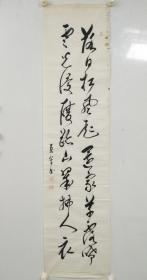 落日松風起還家草露晞
雲光侵履跡山翠拂人衣